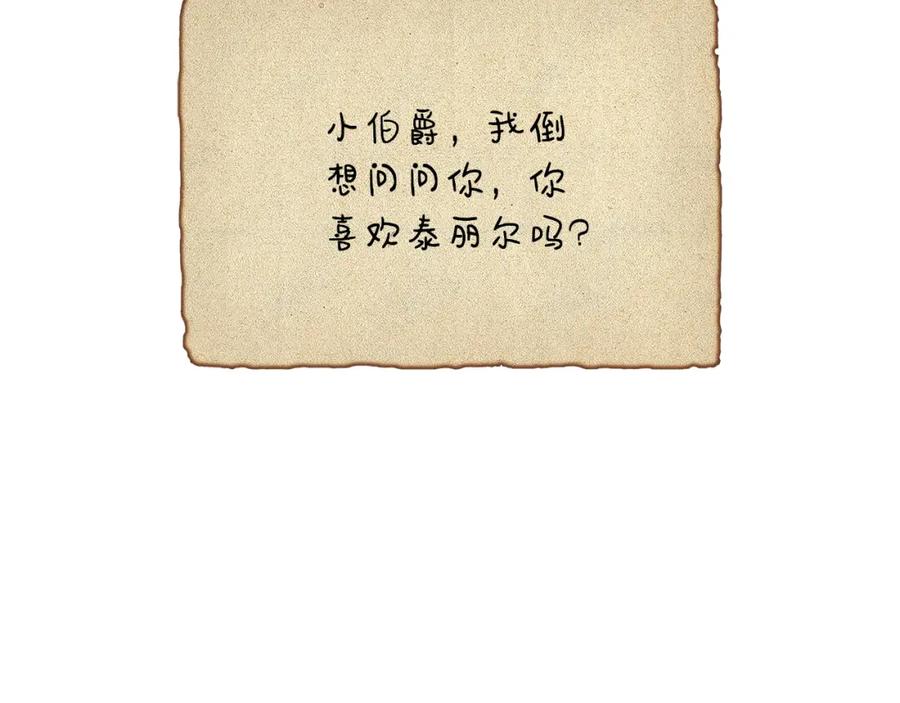 小伯爵，我倒
想问问你，你
喜欢泰丽尔吗？